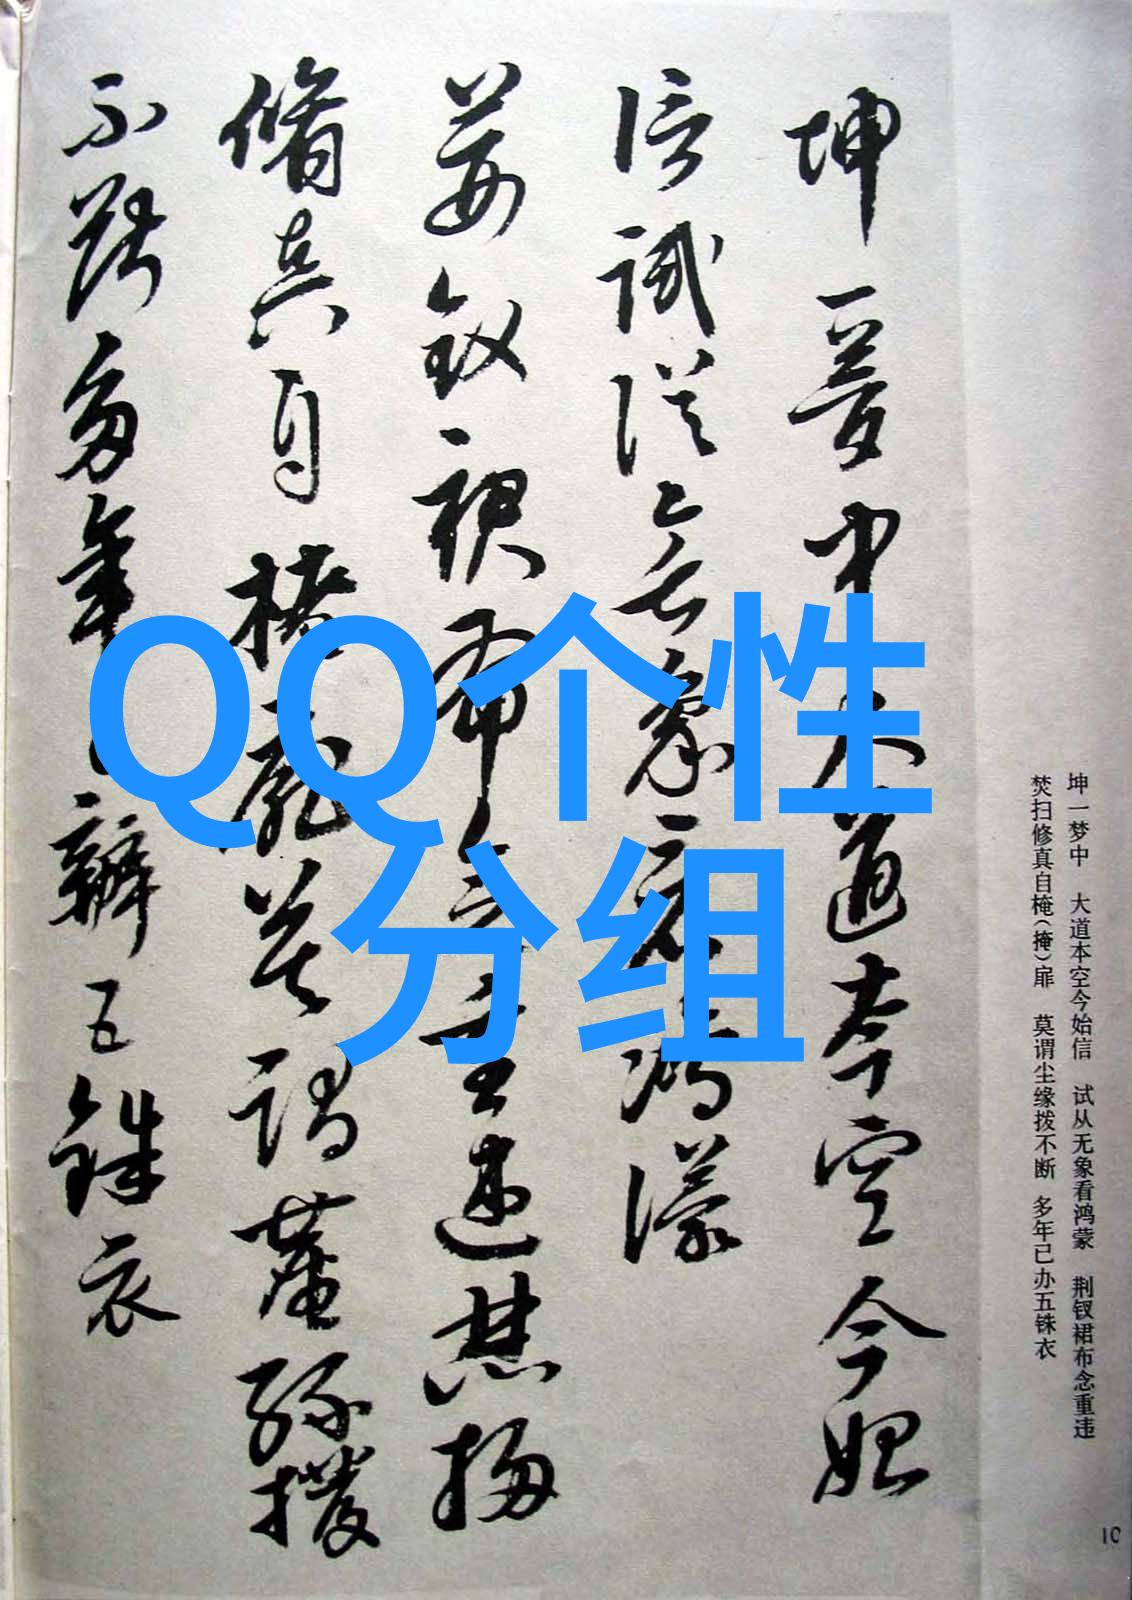 坤一梦中大道本空今始
信试从无象看鸿蒙
荆钗裙布念重违焚扫
修真自掩扉莫谓尘缘拨
不断多年已办五铢衣
QQ个性
分组
坤一梦中 大道本空今始信 试从无象看鸿蒙 荆钗裙布念重违
焚扫修真自桡(掩)扉 莫谓尘缘拨不断 多年已办五铢衣
10